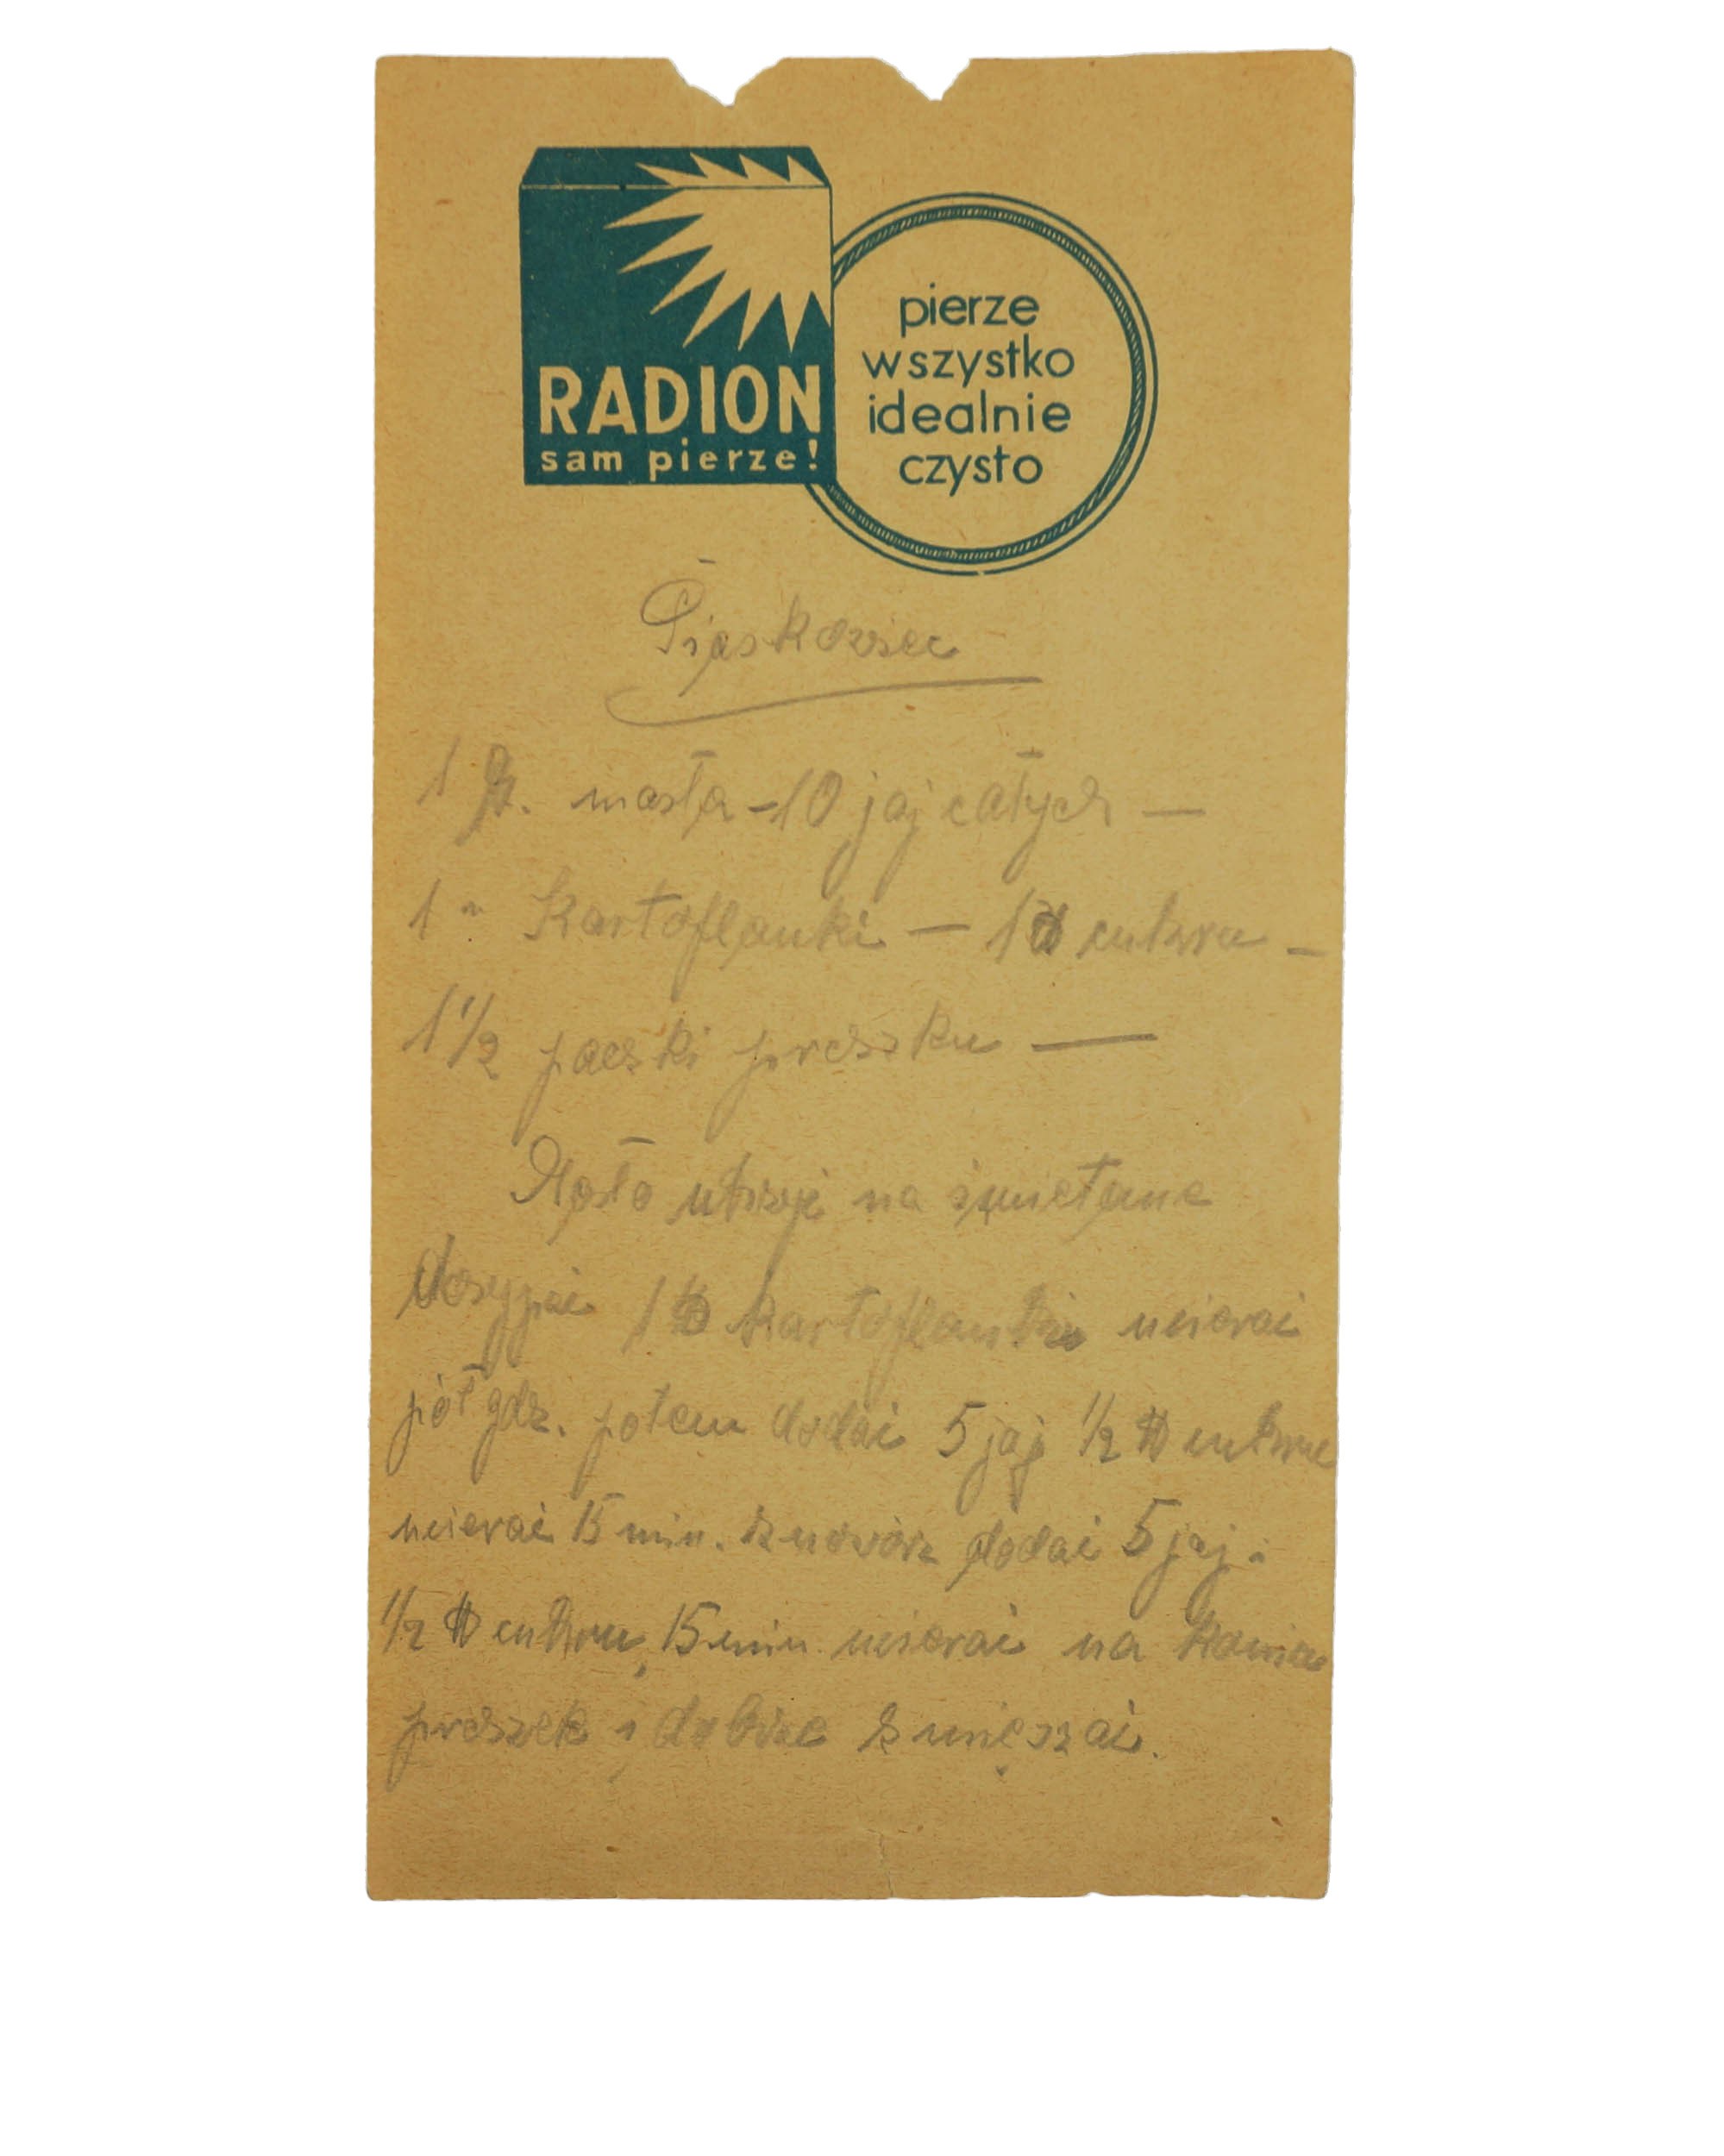 RADION
sam pierze!
pierze
wszystko
idealnie
czysto
Piaskowiec
1 ℔. masła - 10 jaj całych —
1 " Kartoflanki — 1 ℔ cukru —
1 1/2 paczki proszku —
Masło utrzeć na śmietanę
dosypać 1 ℔ kartoflanki ucierać
pół gdz. potem dodać 5 jaj 1/2 ℔ cukru
ucierać 15 min. znowóż dodać 5 jaj i
1/2 ℔ cukru, 15 min. ucierać na końcu
proszek i dobrze zmięszać.